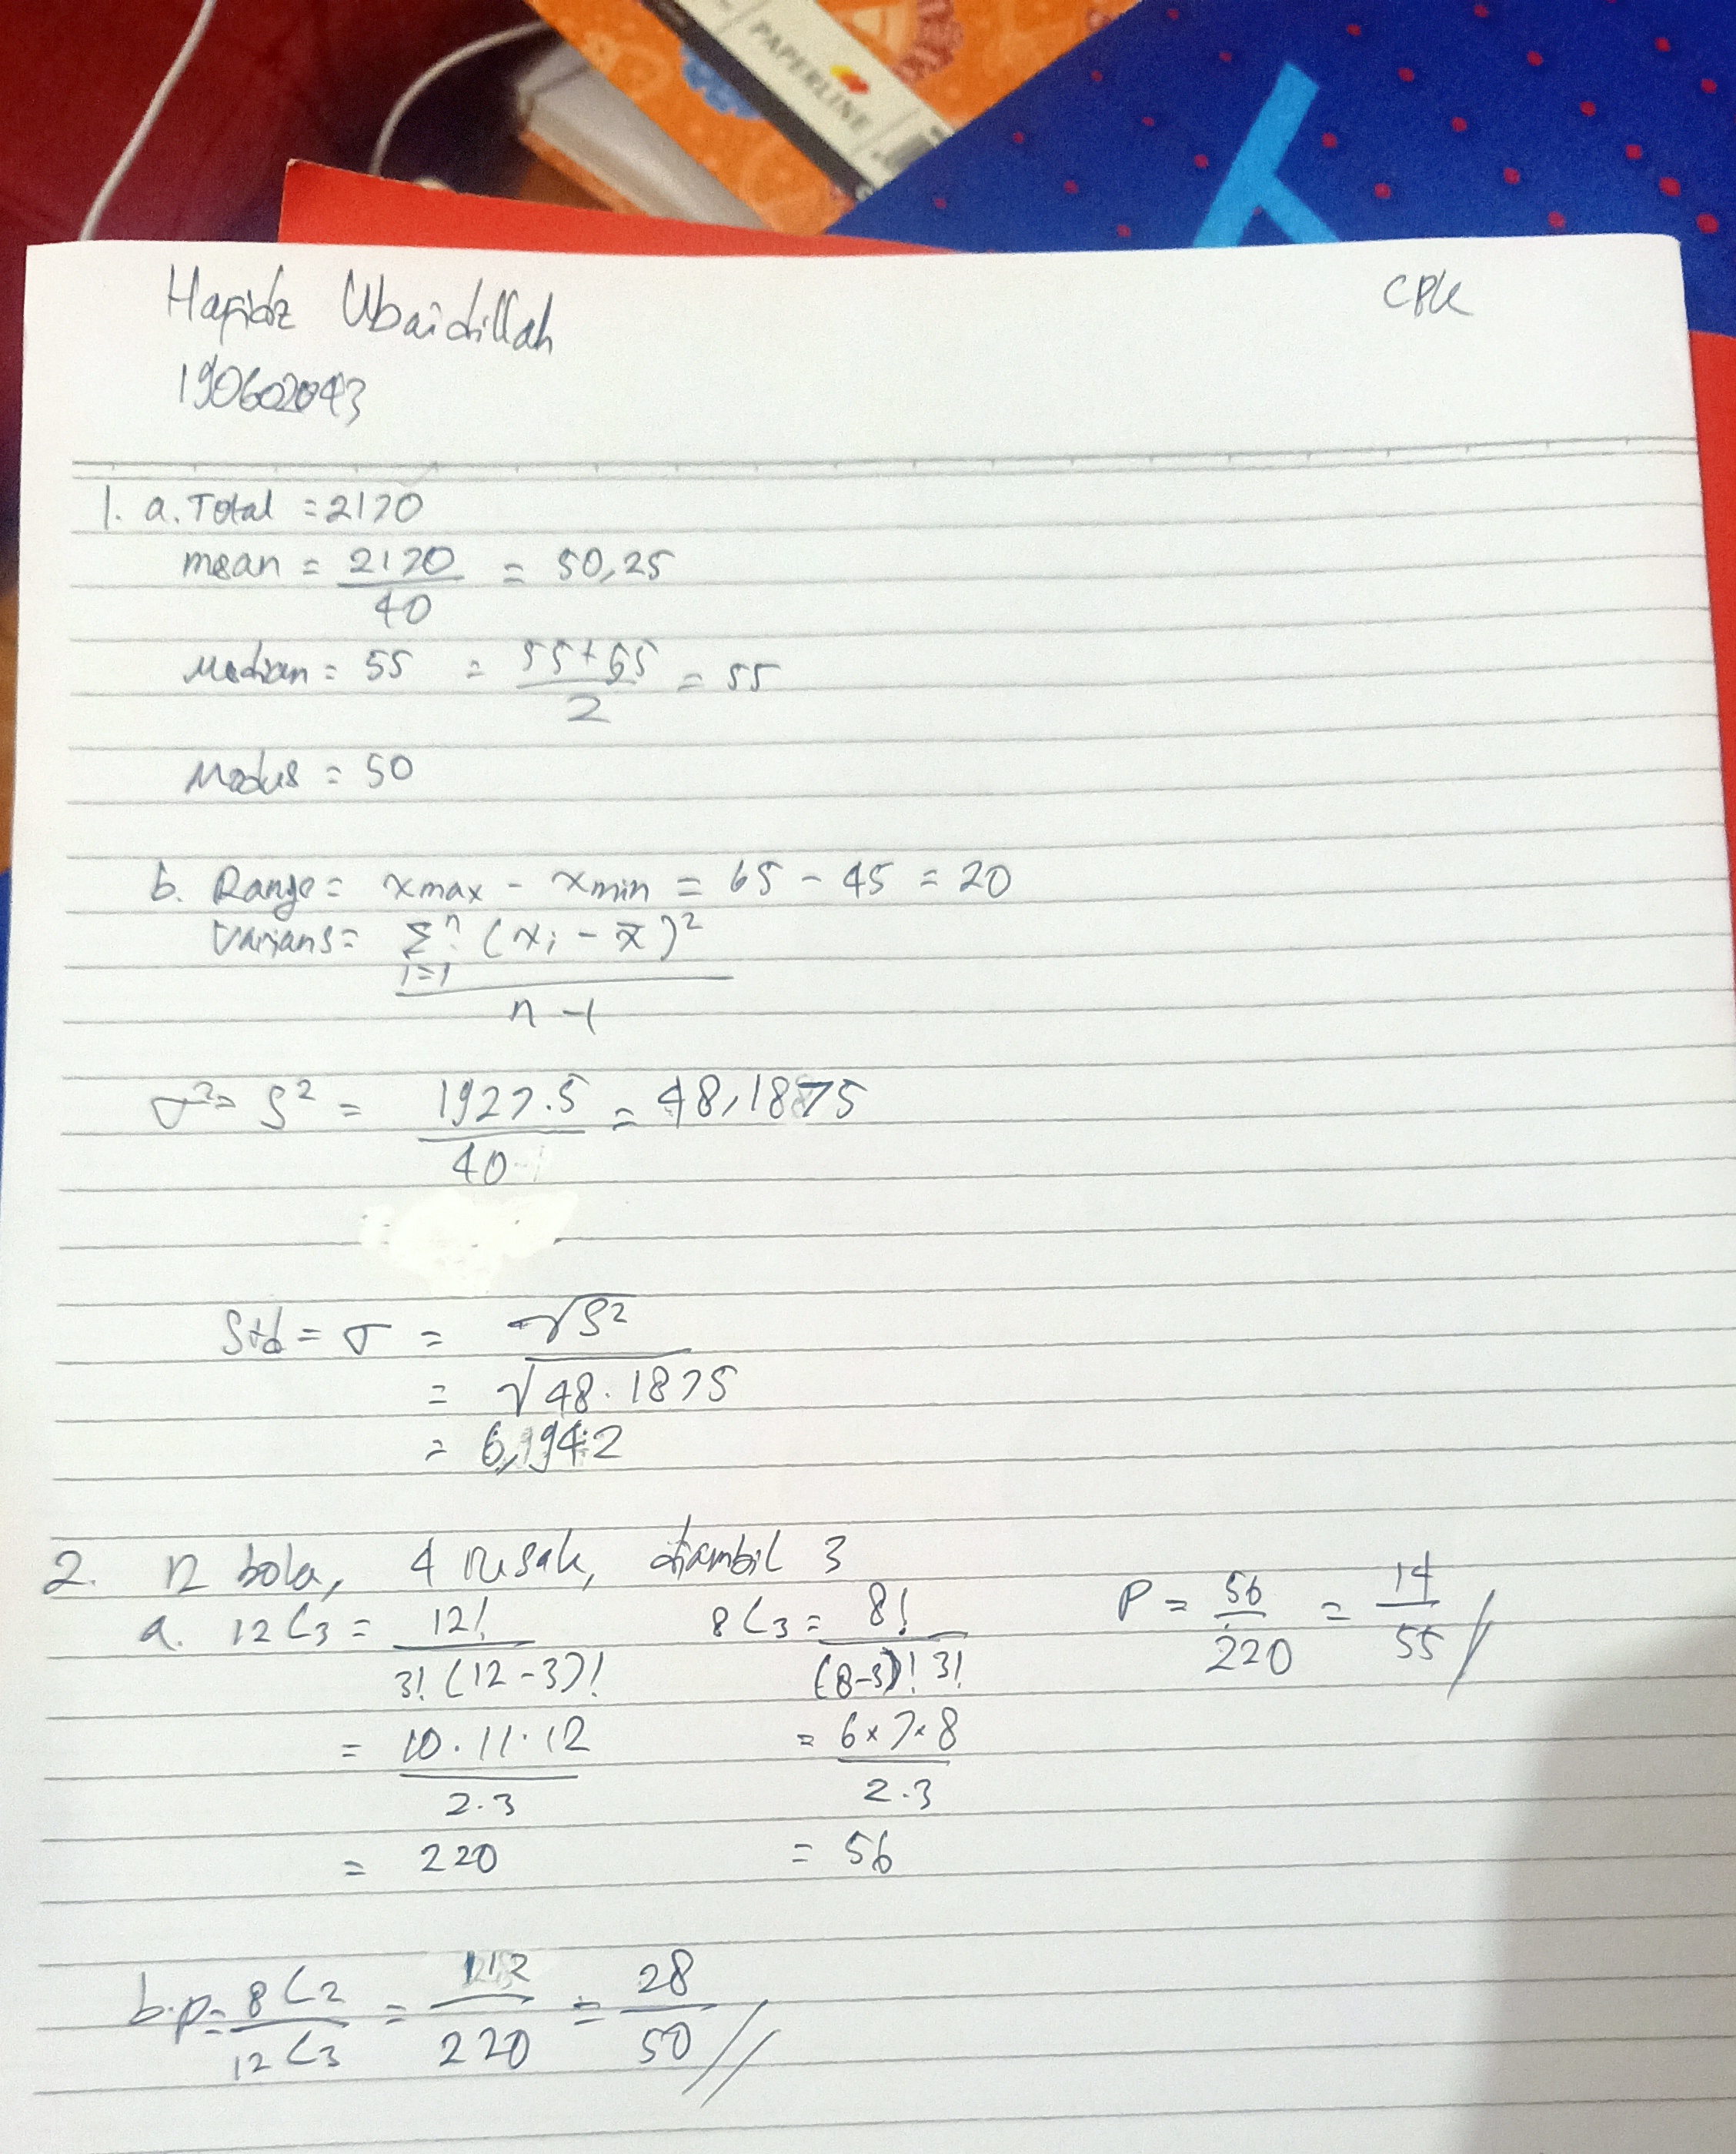 PAPERLINE
Hafidz Ubaidillah
190602043
1. a. Total = 2170
mean = 2170 / 40 = 50,25
Median = 55 = 55+55 / 2 = 55
Modus = 50
b. Range = xmax - xmin = 65 - 45 = 20
Varians = Σⁿ i=1 (xi - x̄)² / n-1
σ² = S² = 1927.5 / 40 = 48,1875
Std = σ = √S²
= √48.1875
= 6,942
2. 12 bola, 4 rusak, diambil 3
a. 12C3 = 12! / 3!(12-3)! 8C3 = 8! / (8-3)! 3! P = 56 / 220 = 14 / 55 //
= 10.11.12 / 2.3 = 6x7x8 / 2.3
= 220 = 56
b. p = 8C2 / 12C3 = 112 / 220 = 28 / 50 //